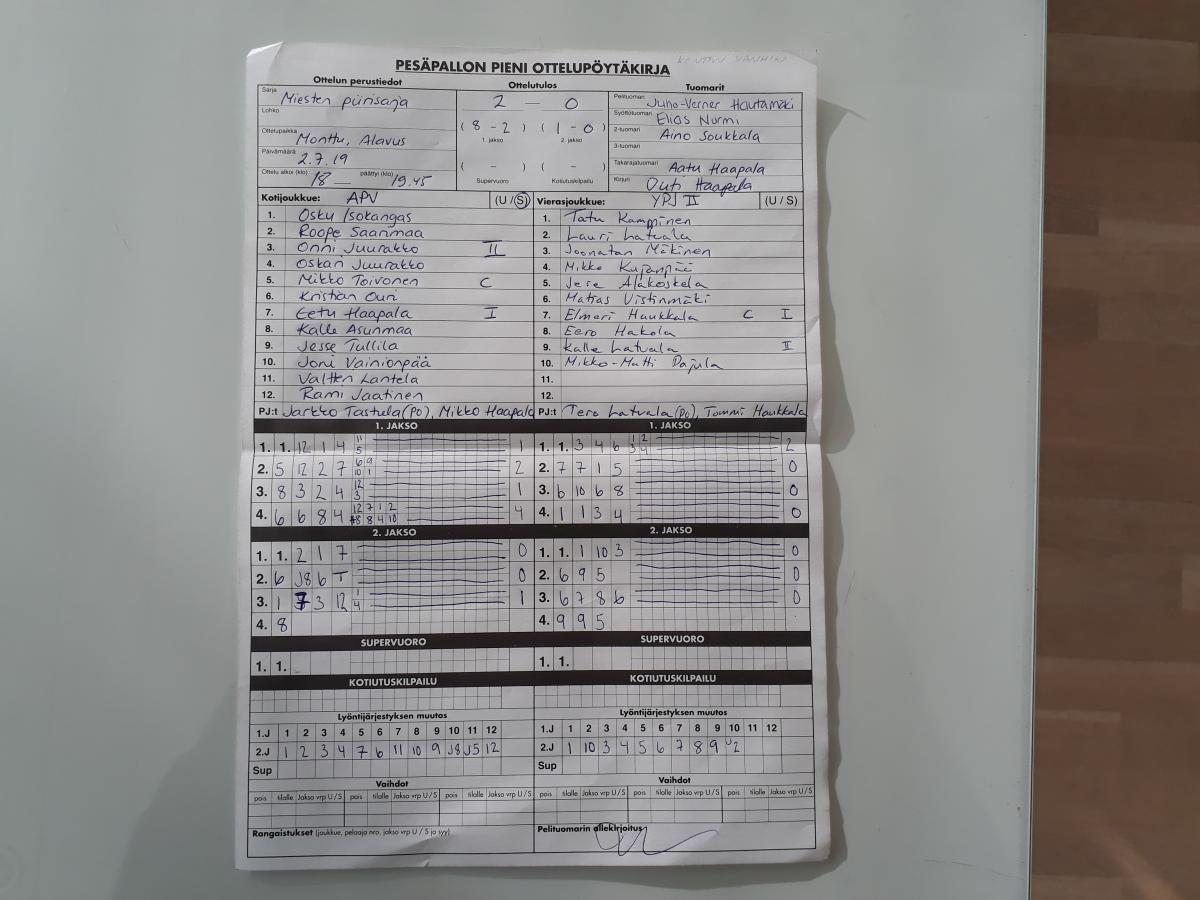 PESÄPALLON PIENI OTTELUPÖYTÄKIRJA
Ottelun perustiedot
Sarja Miesten piirisarja
Lohko
Ottelupaikka Monttu, Alavus
Päivämäärä 2.7.19
Ottelu alkoi (klo) 18 päättyi (klo) 19.45
Ottelutulos
2 - 0
(8-2) (1-0)
1. jakso 2. jakso
( - ) ( - )
Supervuoro Kotiutuskilpailu
Tuomarit
Pelituomari Juho-Verner Hautamäki
Syöttötuomari Elias Nurmi
2-tuomari Aino Soukkala
3-tuomari
Takarajatuomari Aatu Haapala
Kirjuri Outi Haapala
Kotijoukkue: APV (U / S)
1. Osku Isokangas
2. Roope Saarimaa
3. Onni Juurakko II
4. Oskari Juurakko
5. Mikko Toivonen C
6. Kristian Ouri
7. Eetu Haapala I
8. Kalle Asunmaa
9. Jesse Tullila
10. Joni Vainionpää
11. Valtteri Lantela
12. Rami Jaatinen
PJ:t Jarkko Tastula (PO), Mikko Haapala
Vierasjoukkue: YPJ II (U / S)
1. Tatu Kamppinen
2. Lauri Latvala
3. Joonatan Mäkinen
4. Mikko Kujanpää
5. Jere Alakoskela
6. Matias Viitinmäki
7. Elmeri Haukkala C I
8. Eero Hakola
9. Kalle Latvala II
10. Mikko-Matti Pajula
11.
12.
PJ:t Tero Latvala (PO), Tommi Haukkala
1. JAKSO
1. 1. 12 1 4 11 5 1
2. 5 12 2 7 6 9 10 1 2
3. 8 3 2 4 12 3 1
4. 6 6 8 4 12 7 1 2 8 8 4 10 4
1. JAKSO
1. 1. 3 4 6 1 2 3 4 2
2. 7 7 1 5 0
3. 6 10 6 8 0
4. 1 1 3 4 0
2. JAKSO
1. 1. 2 1 7 0
2. 6 J8 6 T 0
3. 1 7 3 12 1 4 1
4. 8
2. JAKSO
1. 1. 1 10 3 0
2. 6 9 5 0
3. 6 7 8 6 0
4. 9 9 5
SUPERVUORO
1. 1.
SUPERVUORO
1. 1.
KOTIUTUSKILPAILU
KOTIUTUSKILPAILU
Lyöntijärjestyksen muutos
1.J 1 2 3 4 5 6 7 8 9 10 11 12
2.J 1 2 3 4 7 6 11 10 9 J8 J5 12
Sup
Lyöntijärjestyksen muutos
1.J 1 2 3 4 5 6 7 8 9 10 11 12
2.J 1 10 3 4 5 6 7 8 9 J2
Sup
Vaihdot
pois tilalle Jakso vrp U / S pois tilalle Jakso vrp U / S pois tilalle Jakso vrp U / S
Vaihdot
pois tilalle Jakso vrp U / S pois tilalle Jakso vrp U / S pois tilalle Jakso vrp U / S
Rangaistukset (joukkue, pelaaja nro, jakso vrp U / S ja syy)
Pelituomarin allekirjoitus